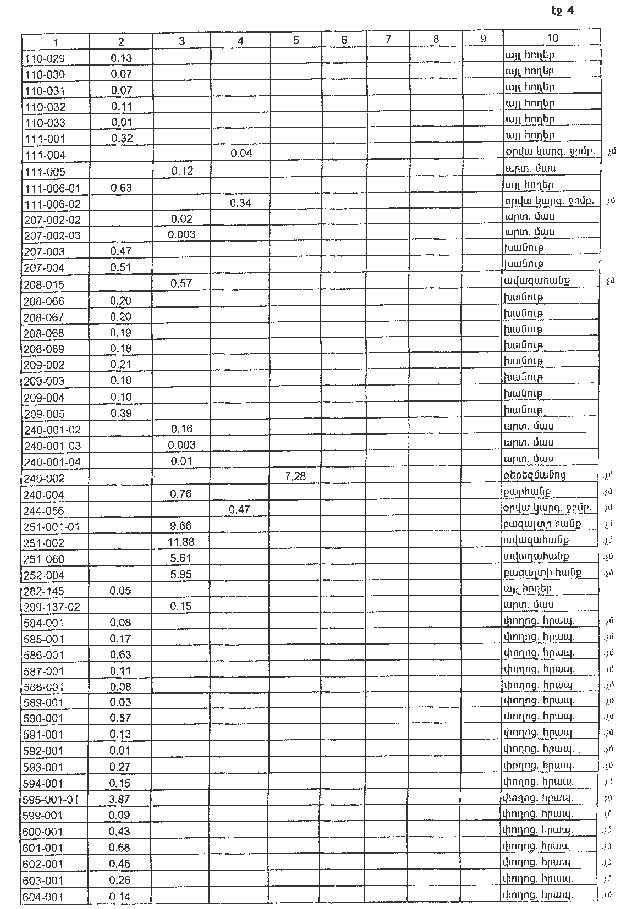 էջ 4
1 2 3 4 5 6 7 8 9 10
110-029 0.13 այլ հողեր
110-030 0.07 այլ հողեր
110-031 0.07 այլ հողեր
110-032 0.11 այլ հողեր
110-033 0.01 այլ հողեր
111-001 0.32 այլ հողեր
111-004 0.04 օրվա կարգ. ջրմբ.
111-005 0.12 արտ. մաս
111-006-01 0.63 այլ հողեր
111-006-02 0.34 օրվա կարգ. ջրմբ.
207-002-02 0.02 արտ. մաս
207-002-03 0.003 արտ. մաս
207-003 0.47 խանութ
207-004 0.51 խանութ
208-015 0.57 ավազահանք
208-066 0.20 խանութ
208-067 0.20 խանութ
208-068 0.19 խանութ
208-069 0.18 խանութ
209-002 0.21 խանութ
209-003 0.18 խանութ
209-004 0.10 խանութ
209-005 0.39 խանութ
240-001-02 0.16 արտ. մաս
240-001-03 0.003 արտ. մաս
240-001-04 0.01 արտ. մաս
240-002 7.28 գերեզմանոց
240-004 0.76 քարհանք
244-056 0.47 օրվա կարգ. ջրմբ.
251-001-01 9.66 բազալտի հանք
251-002 11.88 ավազահանք
251-060 5.61 ավազահանք
252-004 5.95 բազալտի հանք
282-145 0.05 այլ հողեր
299-137-02 0.15 արտ. մաս
584-001 0.08 փողոց. հրապ.
585-001 0.17 փողոց. հրապ.
586-001 0.63 փողոց. հրապ.
587-001 0.11 փողոց. հրապ.
588-001 0.08 փողոց. հրապ.
589-001 0.03 փողոց. հրապ.
590-001 0.57 փողոց. հրապ.
591-001 0.13 փողոց. հրապ.
592-001 0.01 փողոց. հրապ.
593-001 0.27 փողոց. հրապ.
594-001 0.15 փողոց. հրապ.
595-001-01 3.87 փողոց. հրապ.
599-001 0.09 փողոց. հրապ.
600-001 0.43 փողոց. հրապ.
601-001 0.68 փողոց. հրապ.
602-001 0.45 փողոց. հրապ.
603-001 0.26 փողոց. հրապ.
604-001 0.14 փողոց. հրապ.